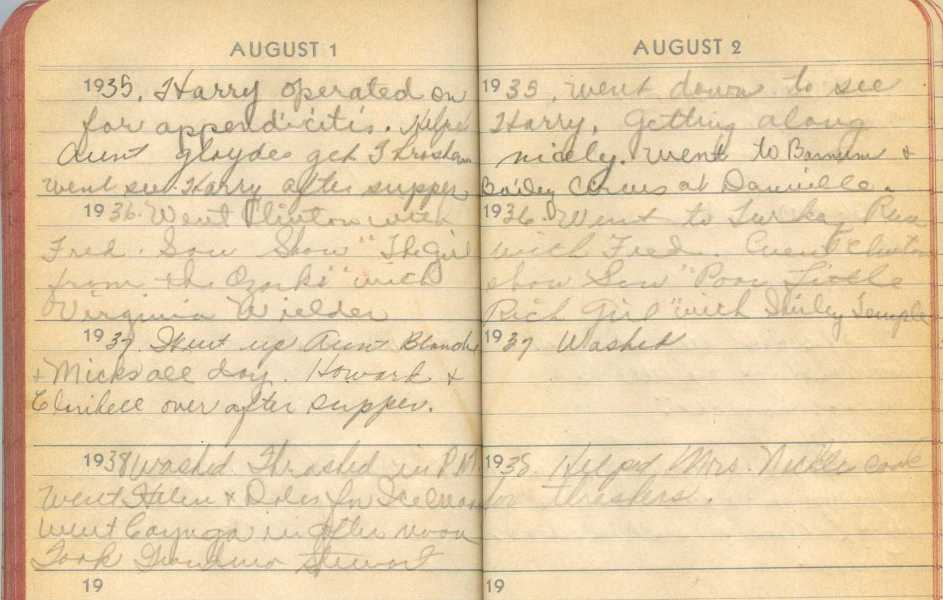 AUGUST 1
1935. Harry operated on
for appendicitis. Helped
Aunt gloydes get Thrashers
went see Harry after supper
1936. Went Clinton with
Fred. Saw Show "The Girl
from the Ozarks" with
Virginia Wielder
1937. Went up Aunt Blanch
+ Micks all day. Howard &
over after supper.
1938 Washed. Thrashed in P.M.
Went Helen & for Ice Cream
Went Cayuga in after noon
Took Grandma Stewart
19
AUGUST 2
1935. went down to see
Harry. Getting along
nicely. Went to Barnum &
Bailey Circus at Danville.
1936. Went to Turkey Run
with Fred. Went Clinton
show Saw "Poor Little
Rich Girl" with Shirley Temple
1937. Washed
1938. Helped Mrs. cook
for thrashers.
19